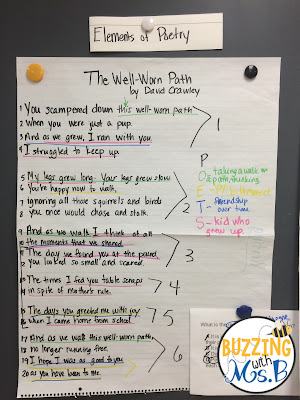 Elements of Poetry
The Well-Worn Path
by David Crawley
1 You scampered down this well-worn path
2 when you were just a pup.
3 And as we grew, I ran with you.
4 I struggled to keep up.
1
5 My legs grew long. Your legs grew slow.
6 You're happy now to walk,
7 ignoring all those squirrels and birds
8 you once would chase and stalk.
2
9 And as we walk I think of all
10 the moments that we shared.
11 The day we found you at the pound
12 you looked so small and scared.
3
13 The times I fed you table scraps
14 in spite of mother's rule.
4
15 The days you greeted me with joy
16 when I came home from school.
5
17 And as we walk this well-worn path,
18 no longer running free,
19 I hope I was as good to you
20 as you have been to me.
6
P
O- taking a walk on
path, thinking
E-
T- friendship
over time
S- kid who
grew up.
What is the
BUZZING
WITH
Ms. B